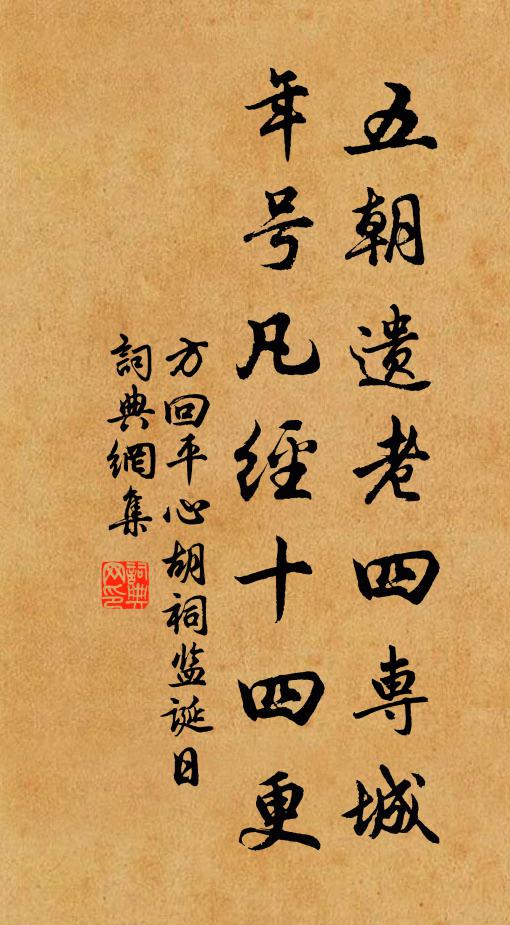 五朝遗老四専城
年号凡经十四更
方回平心胡祠监诞日
詞典網集
詞典网印